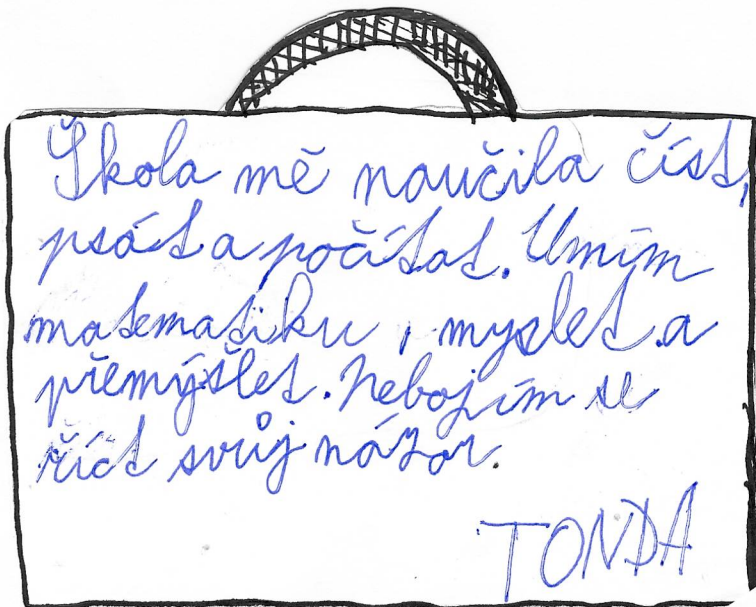 Škola mě naučila číst,
psát a počítat. Umím
matematiku, myslet a
přemýšlet. Nebojím se
říct svůj názor.
TONDA